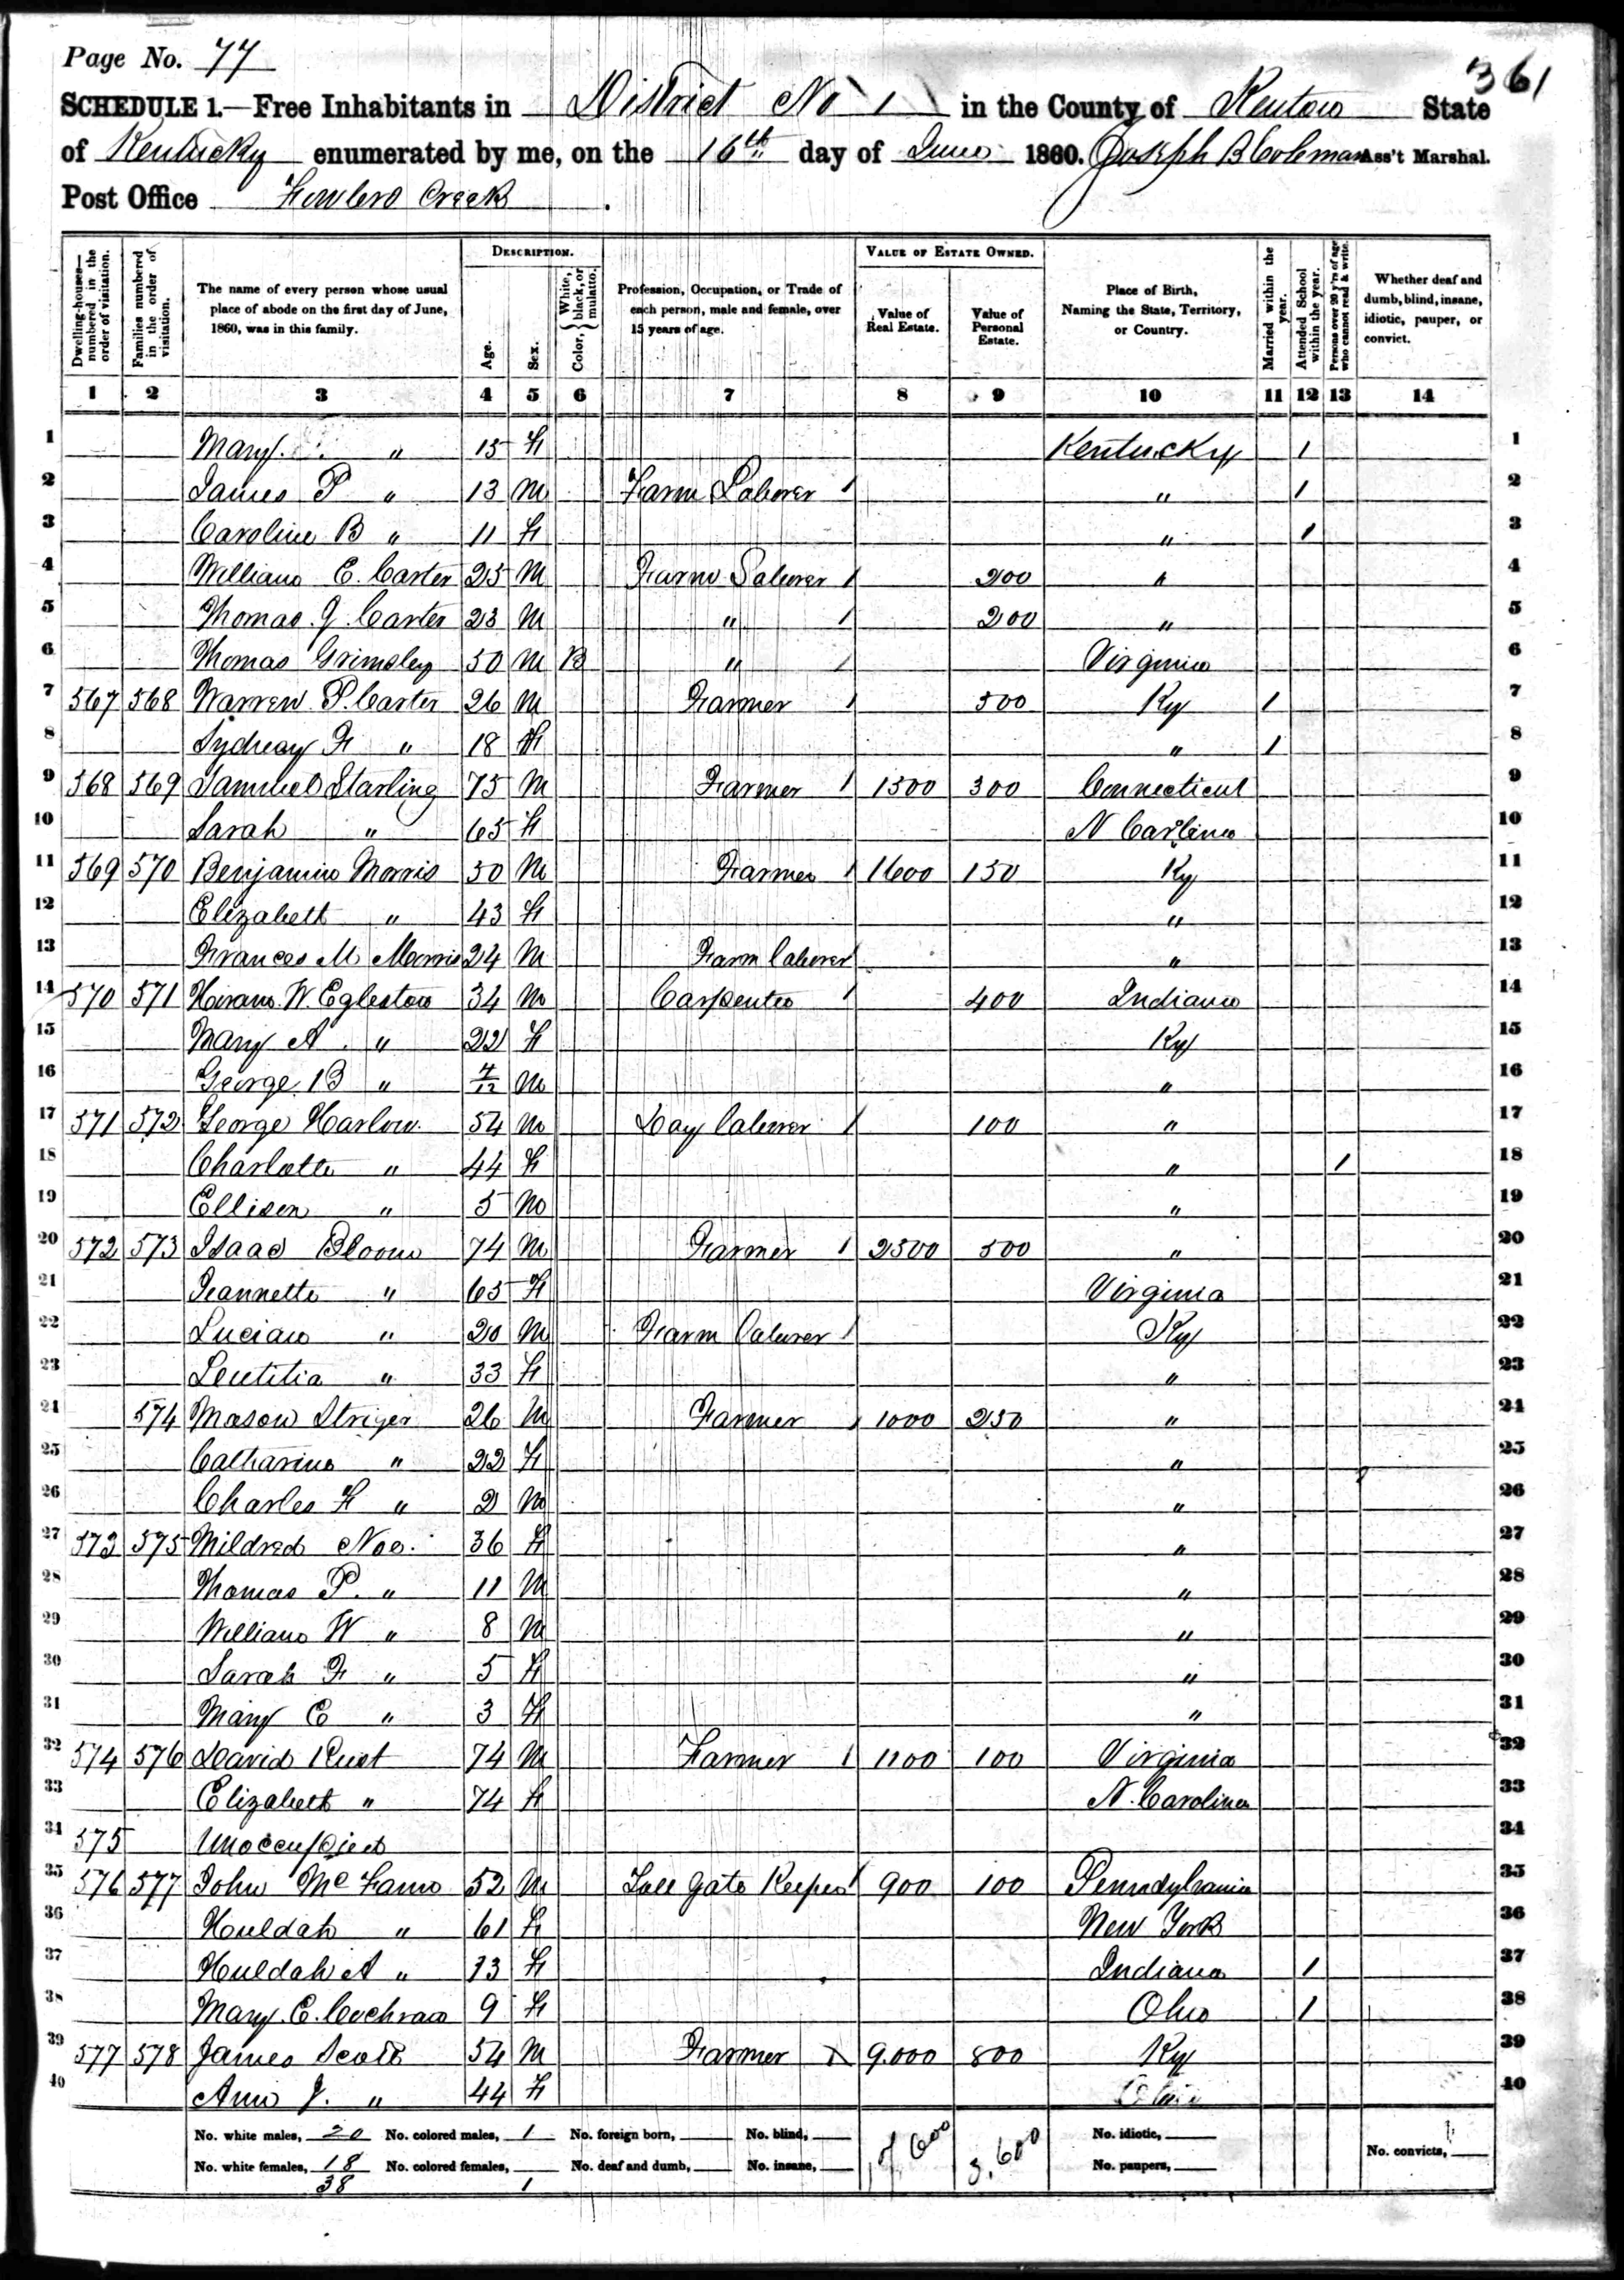 Page No. 77
361
SCHEDULE 1.—Free Inhabitants in District No 1 in the County of Kenton State
of Kentucky enumerated by me, on the 16th day of June 1860. Joseph B Coleman Ass't Marshal.
Post Office Fowlers Creek.
Dwelling-houses—numbered in the order of visitation.
Families numbered in the order of visitation.
The name of every person whose usual place of abode on the first day of June, 1860, was in this family.
DESCRIPTION.
Age.
Sex.
Color, { White, black, or mulatto.
Profession, Occupation, or Trade of each person, male and female, over 15 years of age.
VALUE OF ESTATE OWNED.
Value of Real Estate.
Value of Personal Estate.
Place of Birth, Naming the State, Territory, or Country.
Married within the year.
Attended School within the year.
Persons over 20 y'rs of age who cannot read & write.
Whether deaf and dumb, blind, insane, idiotic, pauper, or convict.
1 2 3 4 5 6 7 8 9 10 11 12 13 14
1 Mary " 15 F Kentucky 1 1
2 James P " 13 M Farm Laborer / " 1 2
3 Caroline B " 11 F " 1 3
4 William E. Carter 25 M Farm Laborer / 200 " 4
5 Thomas G. Carter 23 M " / 200 " 5
6 Thomas Grimsley 50 M B " / Virginia 6
7 567 568 Warren P. Carter 26 M Farmer / 500 Ky 1 7
8 Sydney F " 18 F " 1 8
9 568 569 Samuel Starling 75 M Farmer / 1500 300 Connecticut 9
10 Sarah " 65 F N Carlina 10
11 569 570 Benjamin Morris 50 M Farmer / 1600 150 Ky 11
12 Elizabeth " 43 F " 12
13 Frances M Morris 24 M Farm laborer / " 13
14 570 571 Hiram W. Egleston 34 M Carpenter / 400 Indiana 14
15 Mary A. " 22 F Ky 15
16 George B " 4/12 M " 16
17 571 572 George Harlow 54 M Day laborer / 100 " 17
18 Charlotte " 44 F " 1 18
19 Ellison " 5 M " 19
20 572 573 Isaac Bloom 74 M Farmer / 2500 500 " 20
21 Jeannette " 65 F Virginia 21
22 Lucian " 20 M Farm laborer / Ky 22
23 Leutitia " 33 F " 23
24 574 Mason Striger 26 M Farmer / 1000 250 " 24
25 Catharine " 22 F " 25
26 Charles F " 2 M " 26
27 573 575 Mildred Noe 36 F " 27
28 Thomas P. " 11 M " 28
29 William W " 8 M " 29
30 Sarah F " 5 F " 30
31 Mary E " 3 F " 31
32 574 576 David Rust 74 M Farmer / 1100 100 Virginia 32
33 Elizabeth " 74 F N. Carolina 33
34 575 Unoccupied 34
35 576 577 John McFann 52 M Toll Gate Keeper / 900 100 Pennsylvania 35
36 Huldah " 61 F New York 36
37 Huldah A " 13 F Indiana 1 37
38 Mary E. Cochran 9 F Ohio 1 38
39 577 578 James Scott 54 M Farmer X 9.000 800 Ky 39
40 Ann J. " 44 F 40
No. white males, 20 No. colored males, 1 No. foreign born, No. blind, 3,600 No. idiotic,
No. white females, 18 No. colored females, No. deaf and dumb, No. insane, No. paupers, No. convicts,
38 1